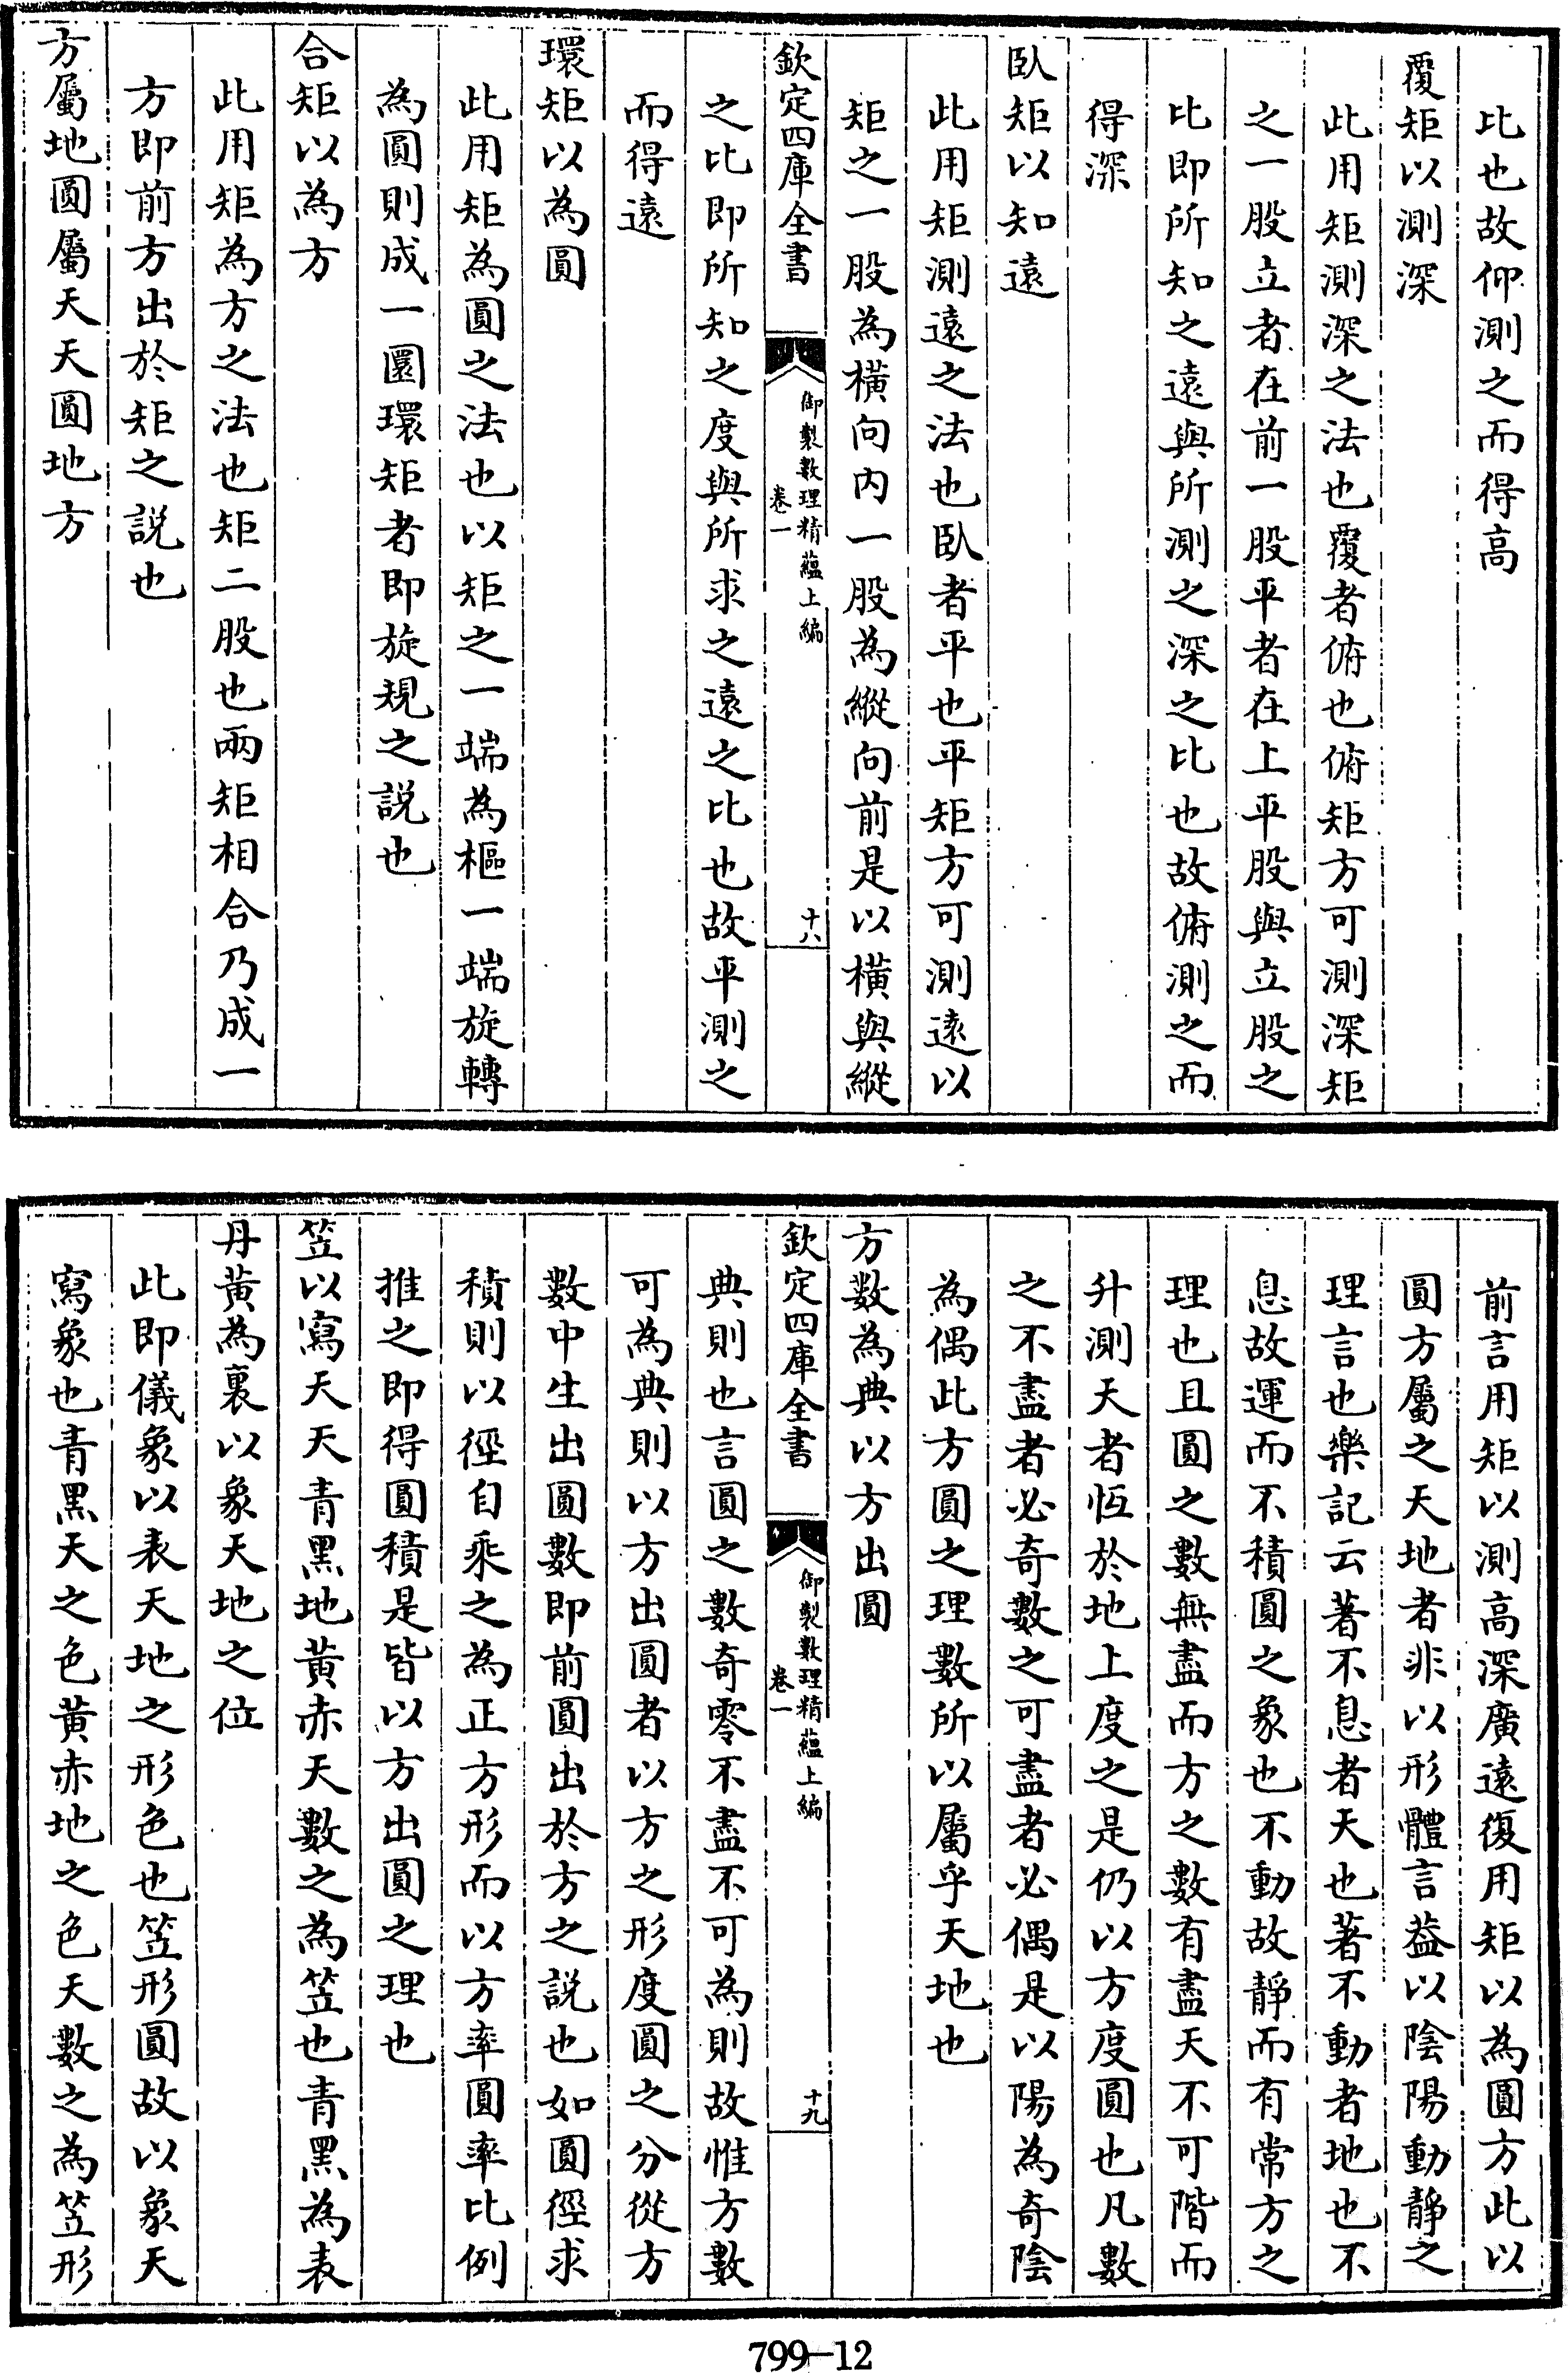 比也故仰測之而得高
覆矩以測深
此用矩測深之法也覆者俯也俯矩方可測深矩
之一股立者在前一股平者在上平股與立股之
比即所知之遠與所測之深之比也故俯測之而
得深
臥矩以知遠
此用矩測遠之法也臥者平也平矩方可測遠以
矩之一股為橫向內一股為縱向前是以橫與縱
欽定四庫全書
御製數理精蘊上編
卷一
十八
之比即所知之度與所求之遠之比也故平測之
而得遠
環矩以為圓
此用矩為圓之法也以矩之一端為樞一端旋轉
為圓則成一圜環矩者即旋規之説也
合矩以為方
此用矩為方之法也矩二股也兩矩相合乃成一
方即前方出於矩之説也
方屬地圓屬天天圓地方
前言用矩以測高深廣遠復用矩以為圓方此以
圓方屬之天地者非以形體言葢以陰陽動靜之
理言也樂記云著不息者天也著不動者地也不
息故運而不積圓之象也不動故靜而有常方之
理也且圓之數無盡而方之數有盡天不可階而
升測天者恆於地上度之是仍以方度圓也凡數
之不盡者必奇數之可盡者必偶是以陽為奇陰
為偶此方圓之理數所以屬乎天地也
方數為典以方出圓
欽定四庫全書
御製數理精蘊上編
卷一
十九
典則也言圓之數奇零不盡不可為則故惟方數
可為典則以方出圓者以方之形度圓之分從方
數中生出圓數即前圓出於方之説也如圓徑求
積則以徑自乘之為正方形而以方率圓率比例
推之即得圓積是皆以方出圓之理也
笠以寫天天青黑地黃赤天數之為笠也青黑為表
丹黃為裏以象天地之位
此即儀象以表天地之形色也笠形圓故以象天
寫象也青黑天之色黃赤地之色天數之為笠形
799-12